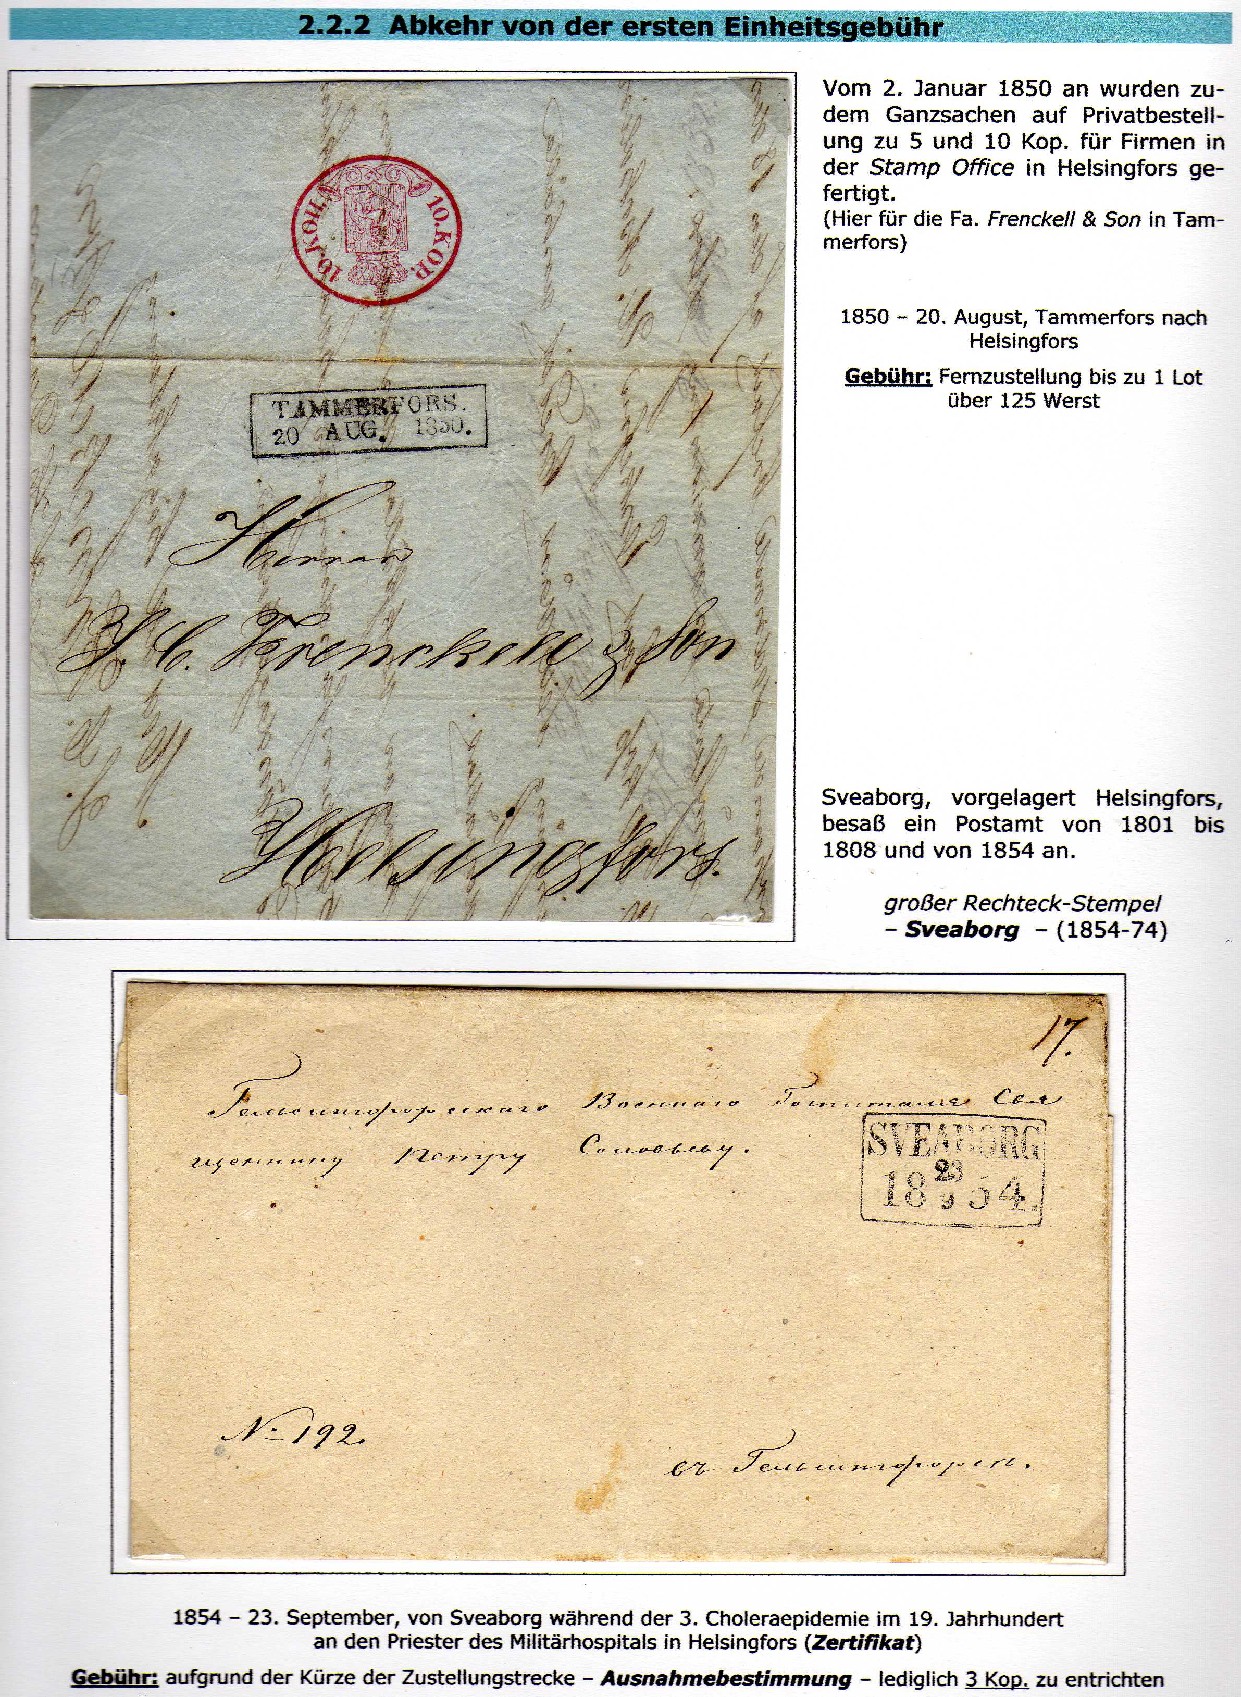 2.2.2 Abkehr von der ersten Einheitsgebühr
Vom 2. Januar 1850 an wurden zu-
dem Ganzsachen auf Privatbestell-
ung zu 5 und 10 Kop. für Firmen in
der Stamp Office in Helsingfors ge-
fertigt.
(Hier für die Fa. Frenckell & Son in Tam-
merfors)
1850 – 20. August, Tammerfors nach
Helsingfors
Gebühr: Fernzustellung bis zu 1 Lot
über 125 Werst
10.КОП. 10.KOP.
TAMMERFORS.
20 AUG. 1850.
Herrar
J. C. Frenckell & Son
Helsingfors.
Sveaborg, vorgelagert Helsingfors,
besaß ein Postamt von 1801 bis
1808 und von 1854 an.
großer Rechteck-Stempel
– Sveaborg – (1854-74)
17.
Гельсингфорскаго Военнаго Госпиталя Свя
щеннику Петру Соловьеву.
SVEABORG
23
18 9 54.
№ 192.
въ Гельсингфорсѣ.
1854 – 23. September, von Sveaborg während der 3. Choleraepidemie im 19. Jahrhundert
an den Priester des Militärhospitals in Helsingfors (Zertifikat)
Gebühr: aufgrund der Kürze der Zustellungstrecke – Ausnahmebestimmung – lediglich 3 Kop. zu entrichten